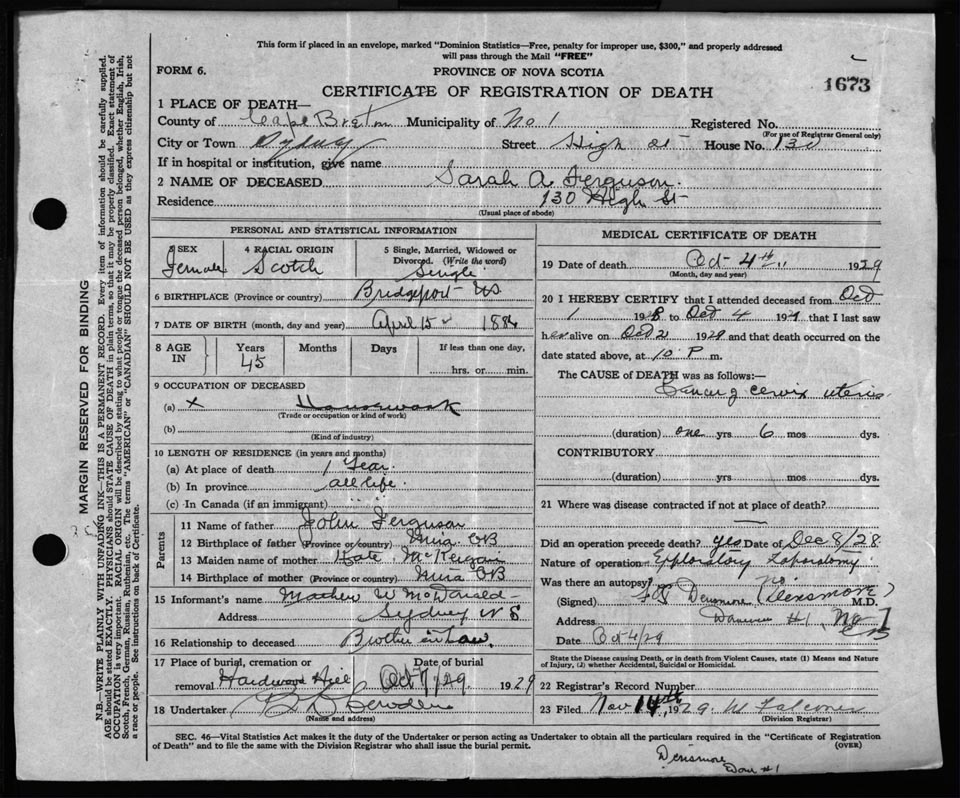 This form if placed in an envelope, marked "Dominion Statistics—Free, penalty for improper use, $300," and properly addressed
will pass through the Mail "FREE"
FORM 6.
PROVINCE OF NOVA SCOTIA
1673
CERTIFICATE OF REGISTRATION OF DEATH
1 PLACE OF DEATH—
County of Cape Breton Municipality of No 1 Registered No.
(For use of Registrar General only)
City or Town Sydney Street High St House No. 130
If in hospital or institution, give name
2 NAME OF DECEASED Sarah A. Ferguson.
Residence 130 High St
(Usual place of abode)
PERSONAL AND STATISTICAL INFORMATION
3 SEX Female
4 RACIAL ORIGIN Scotch
5 Single, Married, Widowed or Divorced. (Write the word) Single
6 BIRTHPLACE (Province or country) Bridgeport NS
7 DATE OF BIRTH (month, day and year) April 15 188
8 AGE IN
Years 45
Months
Days
If less than one day,
hrs. or min.
9 OCCUPATION OF DECEASED
(a) x Housework
(Trade or occupation or kind of work)
(b)
(Kind of industry)
10 LENGTH OF RESIDENCE (in years and months)
(a) At place of death 1 Year.
(b) In province all life.
(c) In Canada (if an immigrant)
Parents
11 Name of father John Ferguson
12 Birthplace of father (Province or country) Mira CB
13 Maiden name of mother Kate
14 Birthplace of mother (Province or country) Mira CB
15 Informant's name— McDonald
Address Sydney N S
16 Relationship to deceased Brother in Law.
17 Place of burial, cremation or removal Hardwood Hill
Date of burial Oct 7/29 1929
18 Undertaker
(Name and address)
MEDICAL CERTIFICATE OF DEATH
19 Date of death Oct 4th 1929
(Month, day and year)
20 I HEREBY CERTIFY that I attended deceased from Oct
1 192 to Oct 4 192 that I last saw
her alive on Oct 2 1929 and that death occurred on the
date stated above, at 10 P m.
The CAUSE of DEATH was as follows:
Cancer of cervix uteris
(duration) one yrs 6 mos dys.
CONTRIBUTORY
(duration) yrs mos dys.
21 Where was disease contracted if not at place of death?
Did an operation precede death? yes Date of Dec 8/28
Nature of operation Exploratory Laporatomy
Was there an autopsy? no
(Signed) Densmore (Densmore) M.D.
Address Dominion #1, No 1
CB
Date Oct 4/29
State the Disease causing Death, or in death from Violent Causes, state (1) Means and Nature of Injury, (2) whether Accidental, Suicidal or Homicidal.
22 Registrar's Record Number
23 Filed Nov 14th 1929 W Falconer
(Division Registrar)
SEC. 46—Vital Statistics Act makes it the duty of the Undertaker or person acting as Undertaker to obtain all the particulars required in the "Certificate of Registration
of Death" and to file the same with the Division Registrar who shall issue the burial permit.
(OVER)
Densmore
Dom #1
MARGIN RESERVED FOR BINDING
N.B.—WRITE PLAINLY WITH UNFADING INK—THIS IS A PERMANENT RECORD. Every item of information should be carefully supplied.
AGE should be stated EXACTLY. PHYSICIANS should STATE CAUSE OF DEATH in plain terms, so that it may be properly classified. Exact statement of
OCCUPATION is very important. RACIAL ORIGIN will be described by stating to what people or tongue the deceased person belonged, whether English, Irish,
Scotch, French, German, Russian, Ruthenian, etc. The terms "AMERICAN" or "CANADIAN" SHOULD NOT BE USED as they express citizenship but not
a race or people. See instructions on back of Certificate.